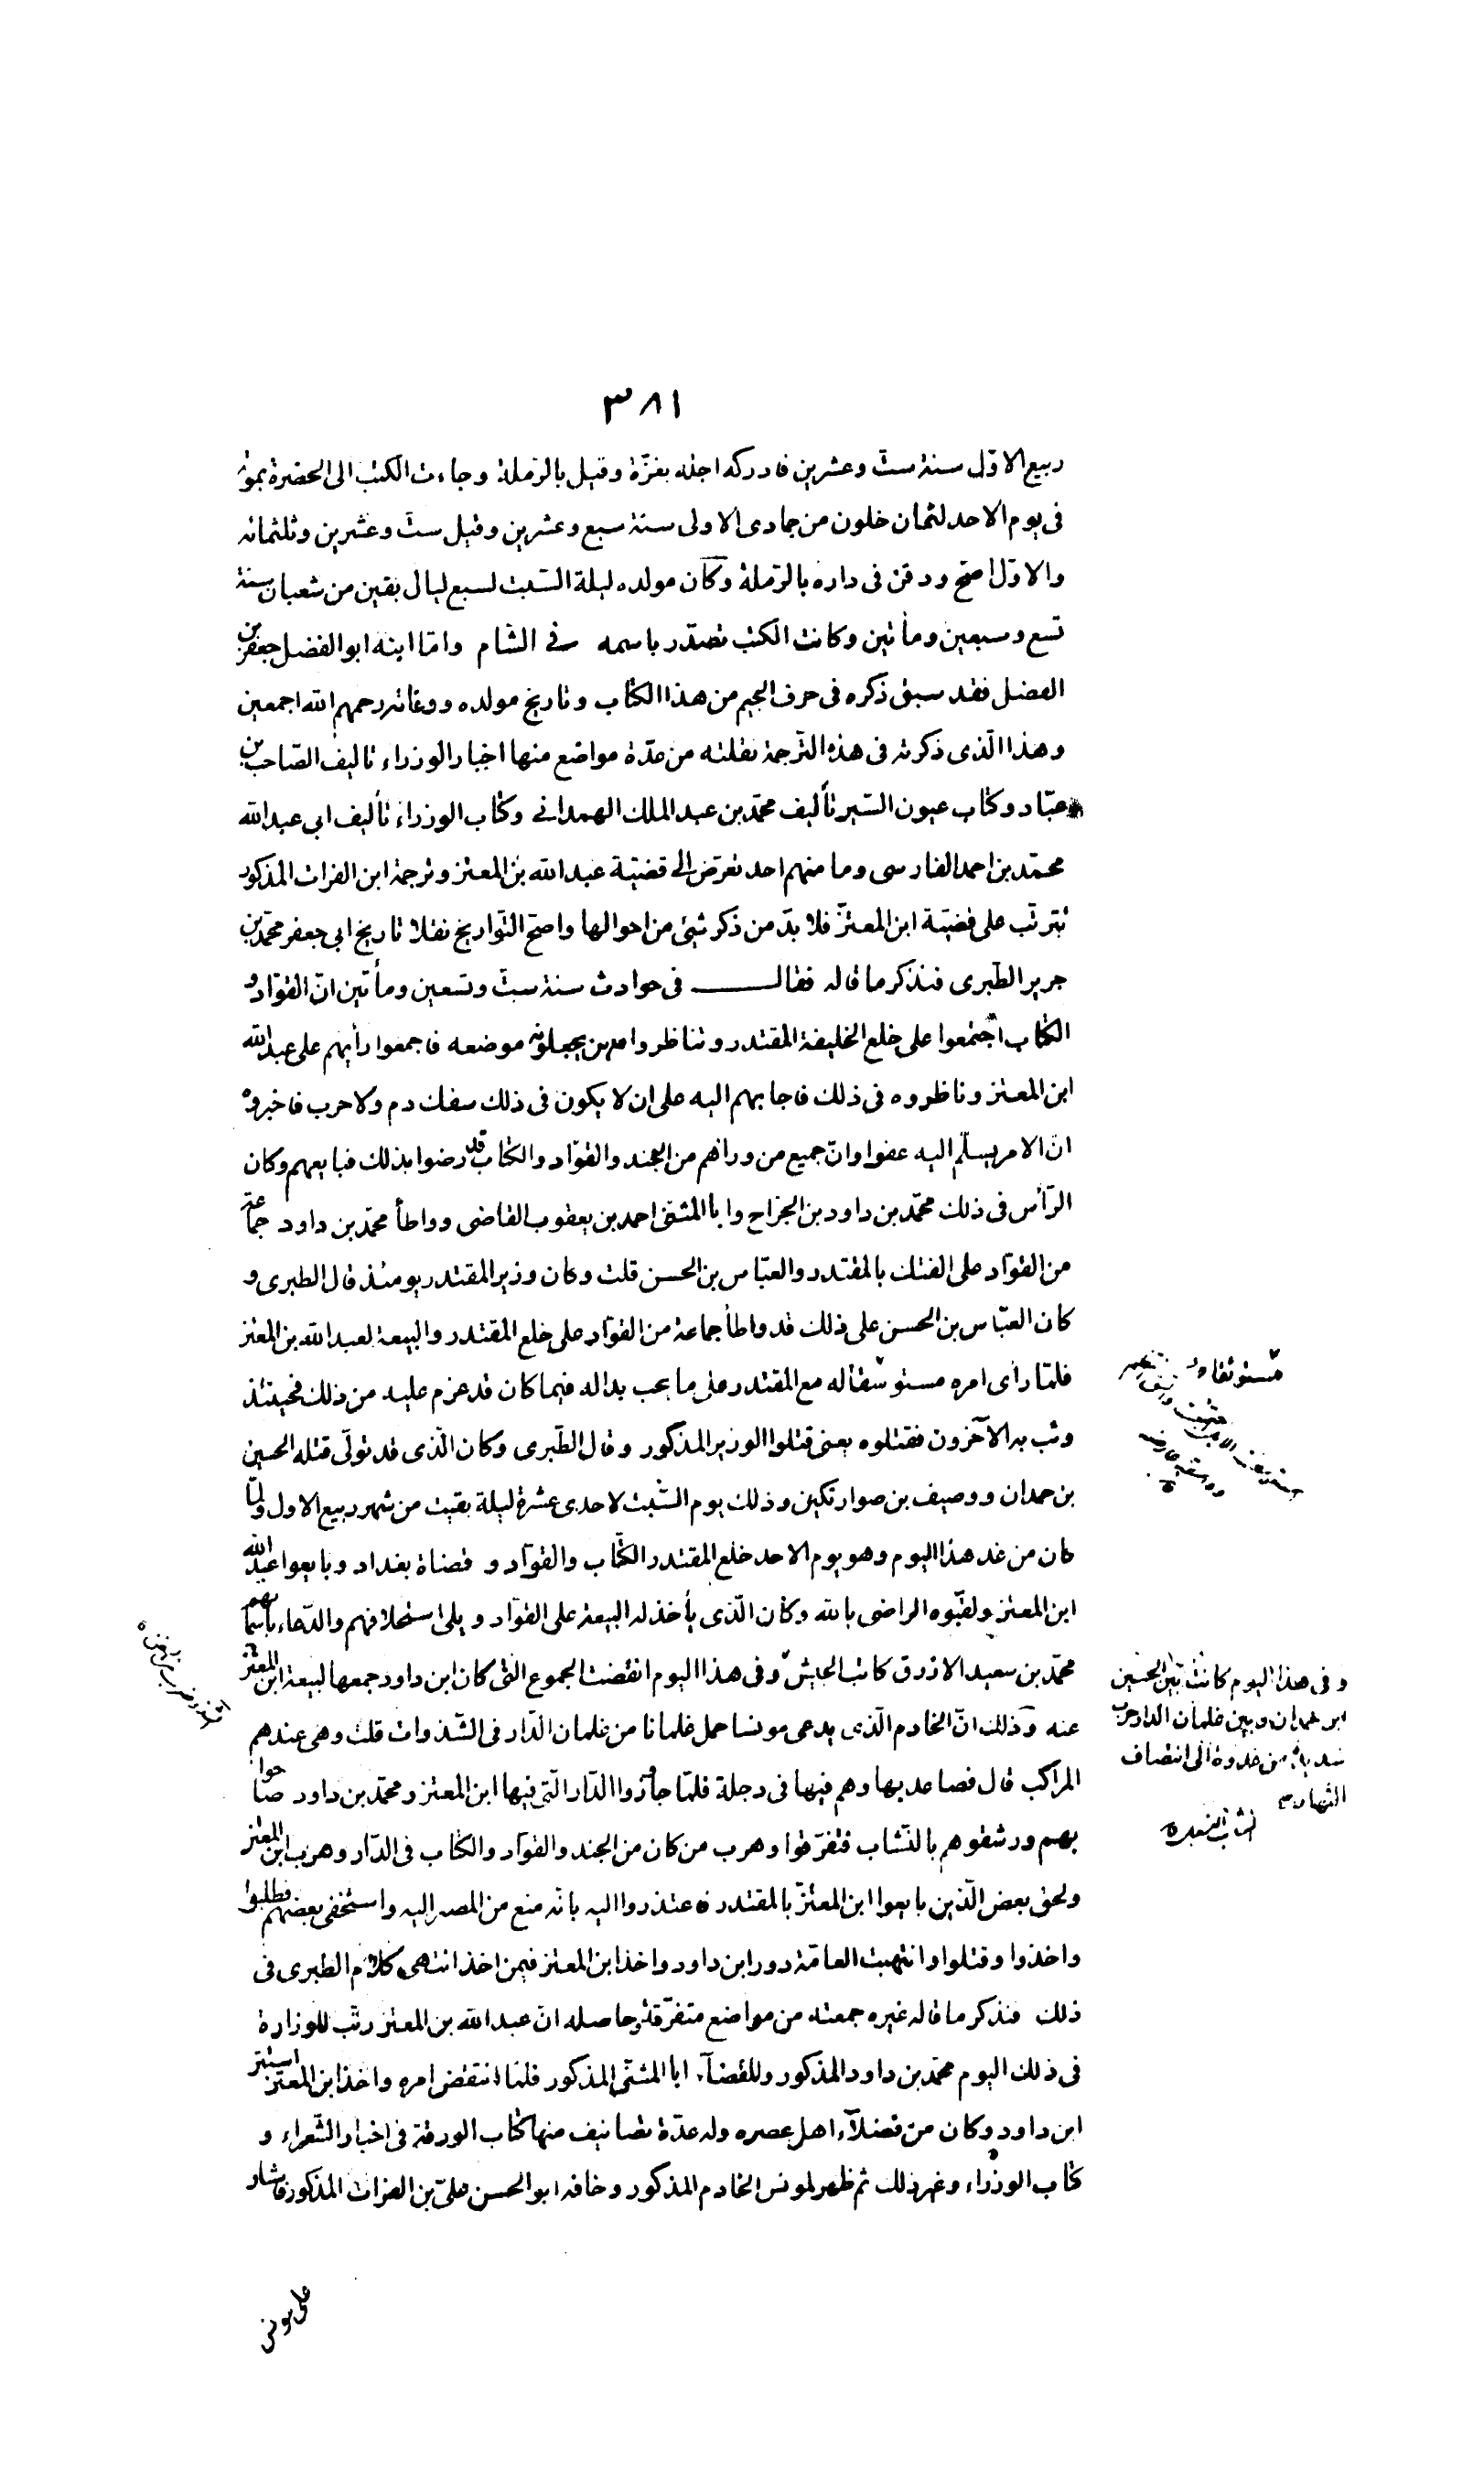 ٣٨١
ربيع الاوّل سنة ستّ وعشرين فادركه اجله بغزّة وقيل بالرّملة وجاءت الكتب الى الحضرة بموته
فى يوم الاحد لثمان خلون من جمادى الاولى سنة سبع وعشرين وقيل ستّ وعشرين وثلثمائه
والاوّل اصحّ ودفن فى داره بالرّملة وكان مولده ليلة السّبت لسبع ليال بقين من شعبان سنة
تسع وسبعين ومأتين وكانت الكتب تصدّر باسمه فى الشام وامّا ابنه ابو الفضل جعفر بن
الفضل فقد سبق ذكره فى حرف الجيم من هذا الكتاب وتاريخ مولده ووفاته رحمهم الله اجمعين
وهذا الّذى ذكرته فى هذه التّرجمة نقلته من عدّة مواضع منها اخبار الوزراء تاليف الصّاحب بن
عبّاد وكتاب عيون السّير تأليف محمّد بن عبد الملك الهمدانى وكتاب الوزراء تأليف ابى عبد الله
محمّد بن احمد الفارسى وما منهم احد تعرّض الى قضيّة عبد الله بن المعتز وترجمة ابن الفرات المذكور
تترتّب على قضيّة ابن المعتزّ فلا بدّ من ذكر شيئ من احوالها واصحّ التّواريخ نقلا تاريخ ابى جعفر محمّد بن
جرير الطّبرى فنذكر ما قاله فقال فى حوادث سنة ستّ وتسعين ومأتين انّ القوّاد و
الكتاب اجتمعوا على خلع الخليفة المقتدر وتناظروا من يجعلونه موضعه فاجمعوا رأيهم على عبد الله
ابن المعتز وناظروه فى ذلك فاجابهم اليه على ان لا يكون فى ذلك سفك دم ولا حرب فاخبروه
انّ الامر يسلّم اليه عفوا وانّ جميع من وراهم من الجند والقوّاد والكتاب قد رضوا بذلك فبايعهم وكان
الرّأس فى ذلك محمّد بن داود بن الجرّاح وابا المثنّى احمد بن يعقوب القاضى وواطأ محمّد بن داود جماعة
من القوّاد على الفتك بالمقتدر والعبّاس بن الحسن قلت وكان وزير المقتدر يومئذ قال الطبرى و
كان العبّاس بن الحسن على ذلك قد واطأ جماعة من القوّاد على خلع المقتدر والبيعة لعبد الله بن المعتز
فلمّا رأى امره مستوثقا له مع المقتدر على ما يحب بدا له فيما كان قد عزم عليه من ذلك فحينئذ
وثب به الآخرون فقتلوه يعنى قتلوا الوزير المذكور وقال الطّبرى وكان الّذى قد تولّى قتله الحسين
بن حمدان ووصيف بن صوارتكين وذلك يوم السّبت لاحدى عشرة ليلة بقيت من شهر ربيع الاول ولمّا
كان من غد هذا اليوم وهو يوم الاحد خلع المقتدر الكتّاب والقوّاد وقضاة بغداد وبايعوا عبد الله
ابن المعتز ولقّبوه الراضى بالله وكان الّذى يأخذ له البيعة على القوّاد ويلى استحلافهم والدّعاء باسمائهم
محمّد بن سعيد الازرق كاتب الجيش وفى هذا اليوم انفضت الجموع التى كان ابن داود جمعها لبيعة ابن المعتز
عنه وذلك انّ الخادم الّذى يدعى مونسا حمل غلمانا من غلمان الدّار فى الشّذوات قلت وهى عندهم
المراكب قال فصاعد بها وهم فيها فى دجلة فلمّا حاذوا الدّار الّتى فيها ابن المعتز ومحمّد بن داود صاحوا
بهم ورشقوهم بالنّشاب فتفرّقوا وهرب من كان من الجند والقوّاد والكتاب فى الدّار وهرب ابن المعتز
ولحق بعض الّذين بايعوا ابن المعتزّ بالمقتدر فاعتذروا اليه بانّه منع من المصير اليه واستخفى بعضهم فطلبوا
واخذوا وقتلوا وانتهبت العامّة دور ابن داود واخذ ابن المعتز فيمن اخذ انتهى كلام الطبرى فى
ذلك فنذكر ما قاله غيره جمعته من مواضع متفرّقة وحاصله انّ عبد الله بن المعتز رتّب للوزارة
فى ذلك اليوم محمّد بن داود المذكور وللقضآء ابا المثنّى المذكور فلمّا انتقض امره واخذ ابن المعتز استتر
ابن داود وكان من فضلآء اهل عصره وله عدّة تصانيف منها كتاب الورقة فى اخبار الشّعراء و
كتاب الوزراء وغير ذلك ثم ظهر لمونس الخادم المذكور وخافه ابو الحسن علىّ بن الفرات المذكور فاشار
على مونس
مستوثقا
وفى هذا اليوم كانت بين الحسين
ابن حمدان وبين غلمان الدار حرب
شديدة من غدوة الى انتصاف
النّهار